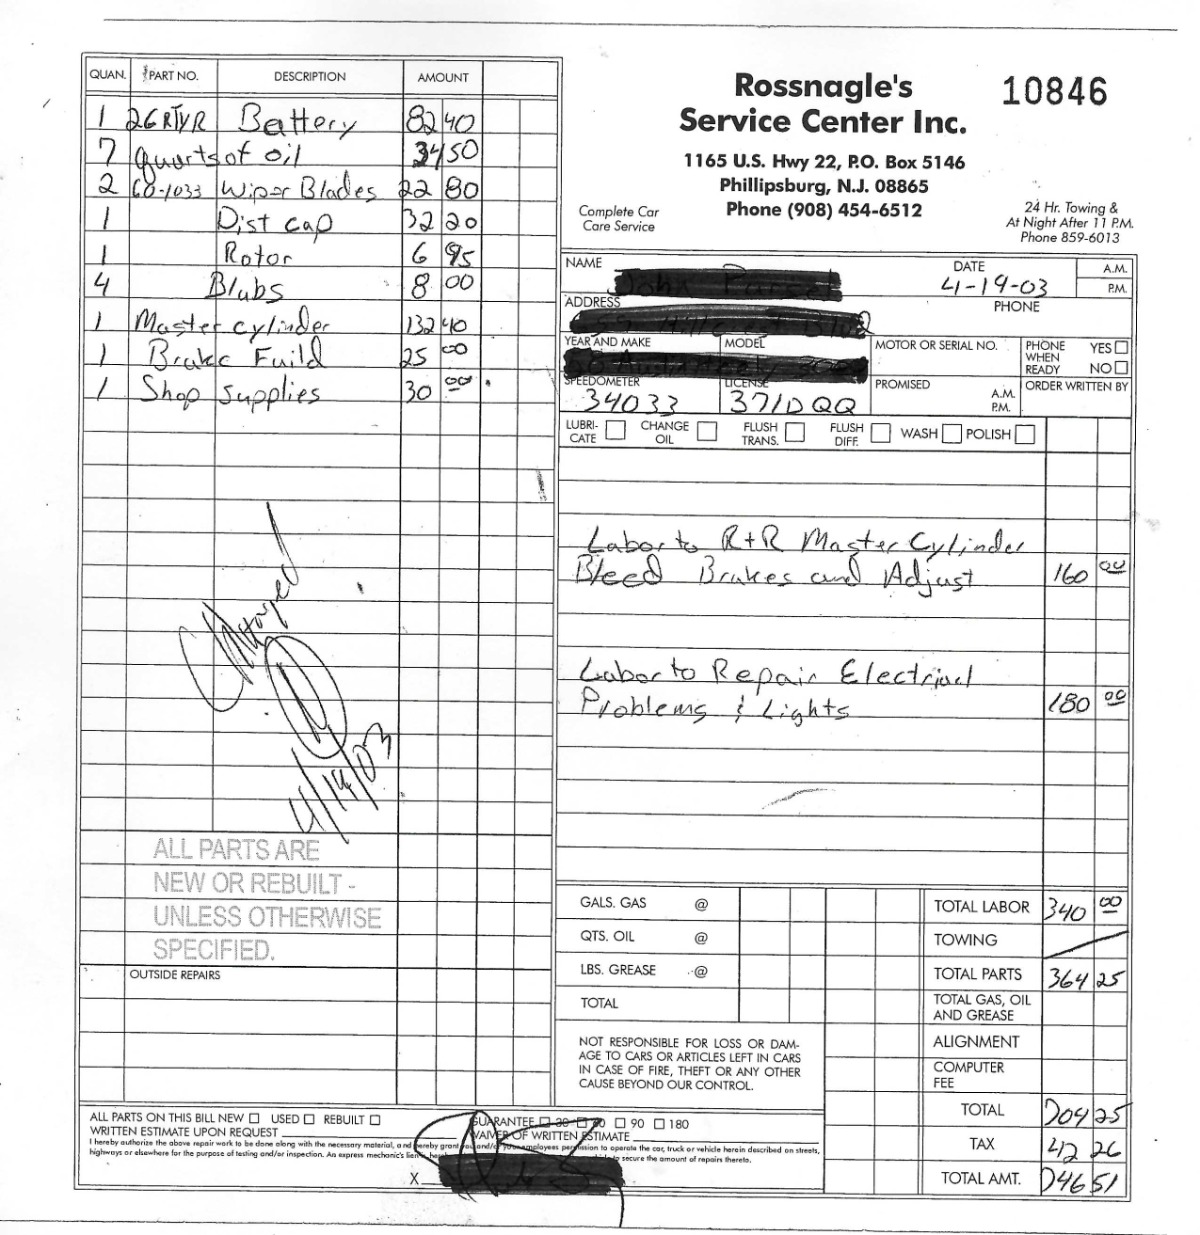 QUAN. PART NO. DESCRIPTION AMOUNT
1 26RTYR Battery 82 40
7 quarts of oil 34 50
2 60-1033 Wiper Blades 22 80
1 Dist cap 32 20
1 Rotor 6 95
4 Blubs 8 00
1 Master cylinder 132 40
1 Brake Fuild 25 00
1 Shop supplies 30 00
Charged
4/19/03
ALL PARTS ARE
NEW OR REBUILT -
UNLESS OTHERWISE
SPECIFIED.
OUTSIDE REPAIRS
Rossnagle's
Service Center Inc.
10846
1165 U.S. Hwy 22, P.O. Box 5146
Phillipsburg, N.J. 08865
Phone (908) 454-6512
Complete Car
Care Service
24 Hr. Towing &
At Night After 11 P.M.
Phone 859-6013
NAME
DATE 4-19-03 A.M.
P.M.
ADDRESS
PHONE
YEAR AND MAKE MODEL MOTOR OR SERIAL NO. PHONE WHEN READY YES NO
SPEEDOMETER 34033 LICENSE 371DQQ PROMISED A.M. P.M. ORDER WRITTEN BY
LUBRI-CATE CHANGE OIL FLUSH TRANS. FLUSH DIFF. WASH POLISH
Labor to R+R Master Cylinder
Bleed Brakes and Adjust 160 00
Labor to Repair Electrical
Problems & Lights 180 00
GALS. GAS @
QTS. OIL @
LBS. GREASE @
TOTAL
NOT RESPONSIBLE FOR LOSS OR DAM-
AGE TO CARS OR ARTICLES LEFT IN CARS
IN CASE OF FIRE, THEFT OR ANY OTHER
CAUSE BEYOND OUR CONTROL.
TOTAL LABOR 340 00
TOWING
TOTAL PARTS 364 25
TOTAL GAS, OIL
AND GREASE
ALIGNMENT
COMPUTER
FEE
TOTAL 704 25
TAX 42 26
TOTAL AMT. 746 51
ALL PARTS ON THIS BILL NEW USED REBUILT GUARANTEE 30 60 90 180
WRITTEN ESTIMATE UPON REQUEST WAIVER OF WRITTEN ESTIMATE
I hereby authorize the above repair work to be done along with the necessary material, and hereby grant you and/or your employees permission to operate the car, truck or vehicle herein described on streets,
highways or elsewhere for the purpose of testing and/or inspection. An express mechanic's lien is to secure the amount of repairs thereto.
X